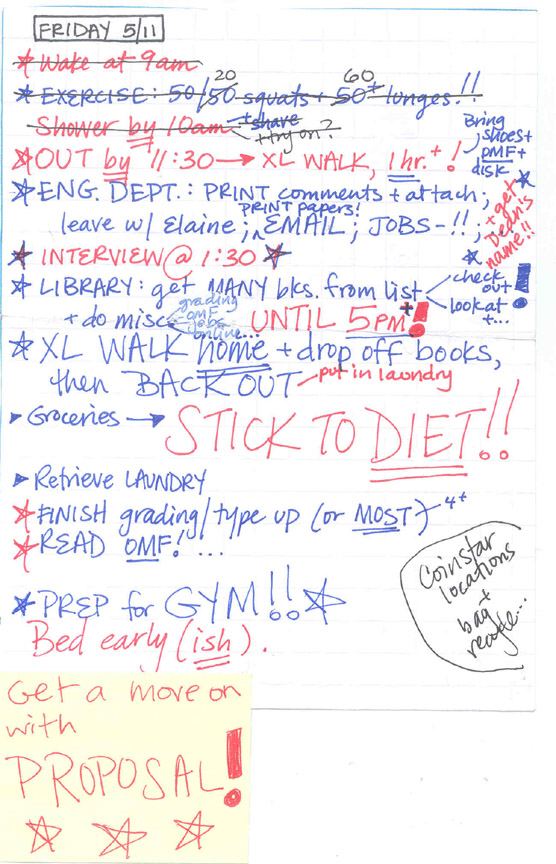 FRIDAY 5/11
Wake at 9am
20 60
EXERCISE: 50/50 squats + 50+ lunges!!
Shower by 10am + shave + try on?
OUT by 11:30 → XL WALK, 1hr.+!
Bring shoes + OMF + disk
ENG. DEPT.: PRINT comments + attach;
PRINT papers!
leave w/ Elaine; EMAIL; JOBS-!!;
+ get Dean's name!!
INTERVIEW @ 1:30
LIBRARY: get MANY bks. from list
check out!
look at + ...
+ do misc
grading
OMF
jobs
online...
UNTIL 5PM+!
XL WALK home + drop off books,
then BACK OUT
put in laundry
Groceries → STICK TO DIET!!
Retrieve LAUNDRY
FINISH grading/type up (or MOST) 4+
READ OMF! ...
Coinstar
locations
+
bag
recycle...
PREP for GYM!!
Bed early (ish).
Get a move on
with
PROPOSAL!